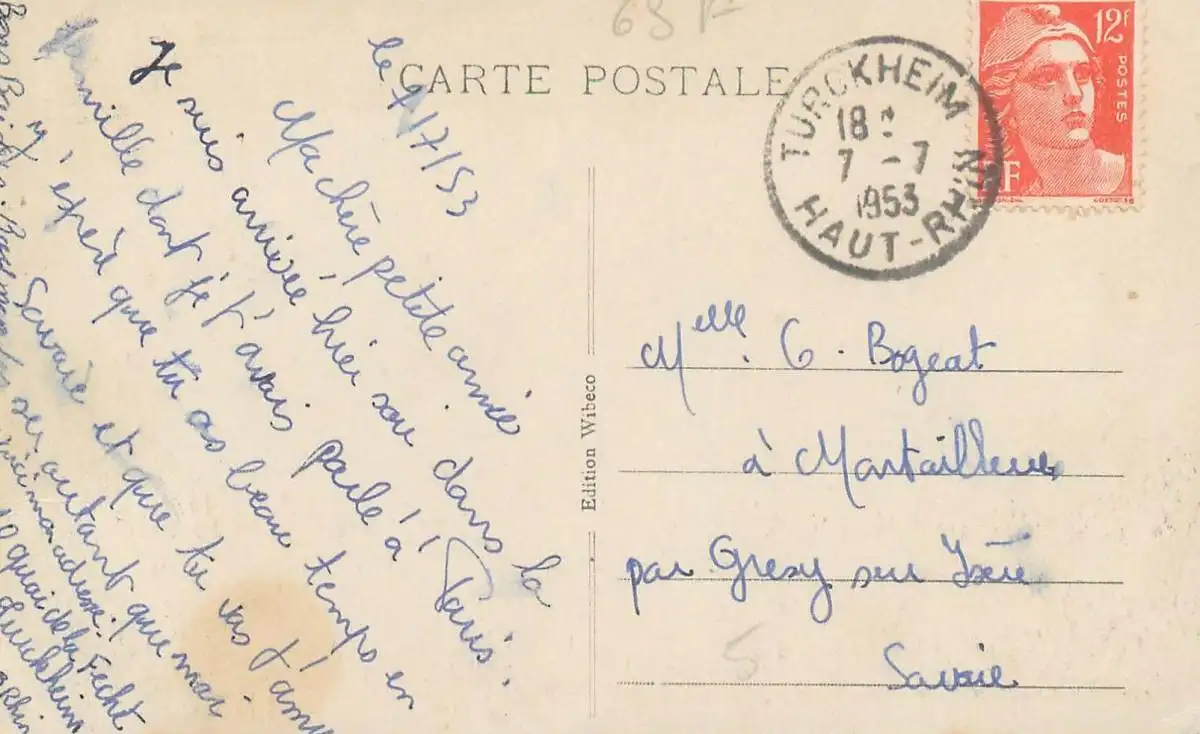 65 F
CARTE POSTALE
12F
POSTES
RF
TURCKHEIM
18
7 - 7
1953
HAUT-RHIN
le 7/7/53
Ma chère petite amie
Je suis arrivée hier soir dans la
famille dont je t'avais parlé à Paris.
J'espère que tu as beau temps en
Savoie et que tu vas t'amu
ser autant que moi
Voici mon adresse:
quai de la Fecht
Turckheim
Rhin
Bons Baisers
Edition Wibeco
Melle. G. Bogeat
à Montailleur
par Gresy sur Isère
Savoie
5